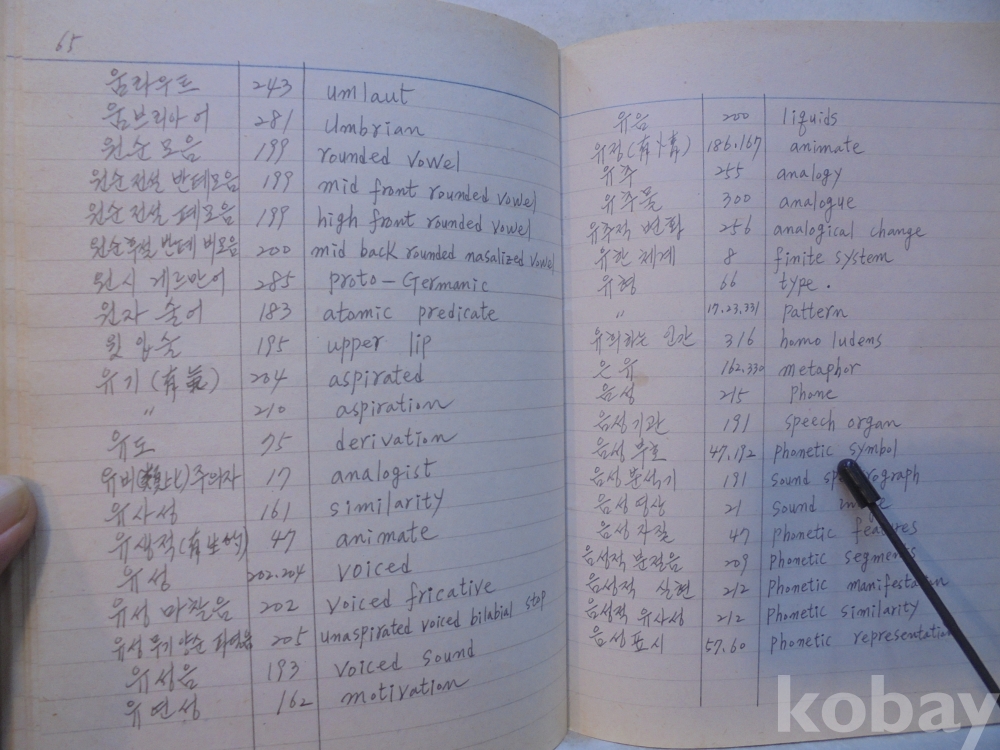 65
움라우트 243 umlaut
움브리아어 281 Umbrian
원순 모음 199 rounded vowel
원순 전설 반폐모음 199 mid front rounded vowel
원순 전설 폐모음 199 high front rounded vowel
원순후설 반폐 비모음 200 mid back rounded nasalized vowel
원시 게르만어 285 proto-Germanic
원자 술어 183 atomic predicate
윗 입술 195 upper lip
유기 (有氣) 204 aspirated
〃 210 aspiration
유도 75 derivation
유비(類比)주의자 17 analogist
유사성 161 similarity
유생적(有生的) 47 animate
유성 202.204 voiced
유성 마찰음 202 voiced fricative
유성 무기 양순 파열음 205 unaspirated voiced bilabial stop
유성음 193 voiced sound
유연성 162 motivation
유음 200 liquids
유정(有情) 186.167 animate
유추 255 analogy
유추물 300 analogue
유추적 변화 256 analogical change
유한 체계 8 finite system
유형 66 type.
〃 17.23.331 pattern
유희하는 인간 316 homo ludens
은유 162.330 metaphor
음성 215 phone
음성기관 191 speech organ
음성 부호 47.192 phonetic symbol
음성 분석기 191 sound
음성 영상 21 sound
음성 자질 47 phonetic features
음성적 분절음 209 phonetic segments
음성적 실현 212 phonetic manifestation
음성적 유사성 212 phonetic similarity
음성 표시 57.60 phonetic representation
kobay